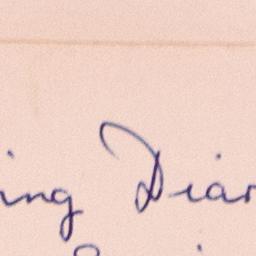 ing Diar